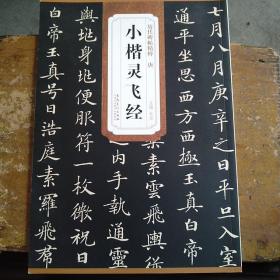 历代碑帖精粹 唐
小楷灵飞经
七月八月庚辛之日平旦入室
通平坐思西方西極玉真白帝
素雲飛輿從
以手執通靈
輿地身地便服符一枚微祝日
白帝玉真号日浩庭素羅飛君